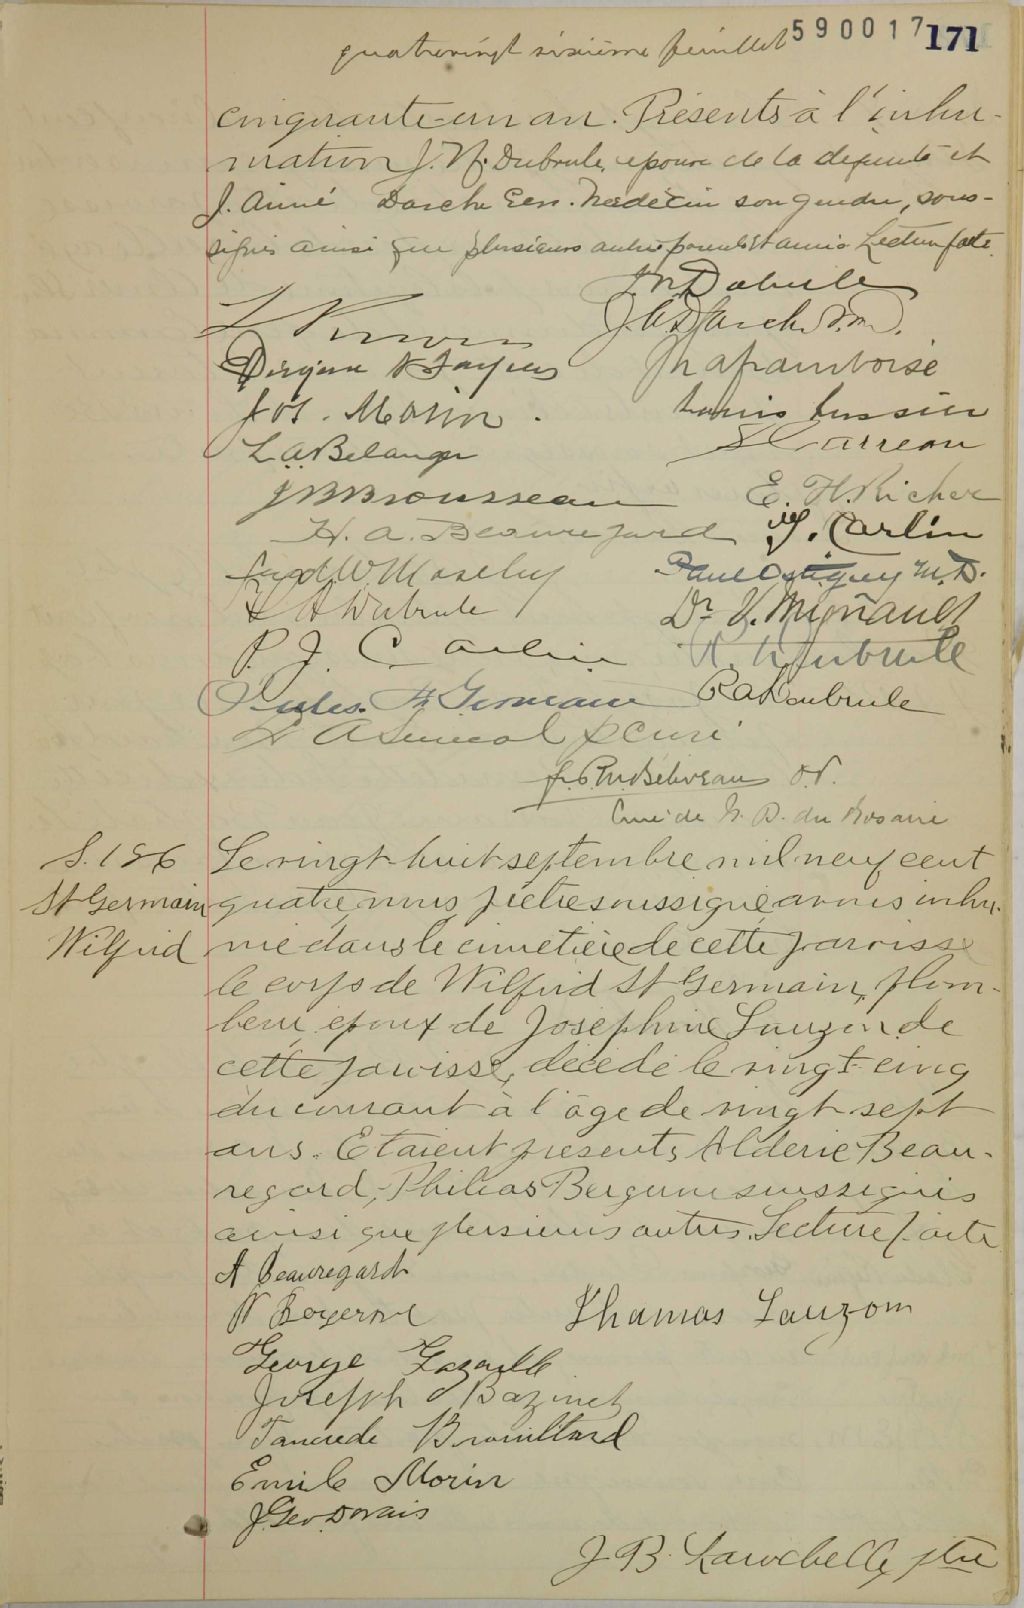 quatrevingt sixième feuillet 590017 171
cinquante-un an. Présents à l'inhu-
mation J. N. Dubrule, epoux de la defunte et
J. Aimé Darche Ecr. Médecin son gendre, sous-
signés ainsi que plusieurs autres parents et amis. Lecture faite.
J N Dubrule
J A Darche D.M.
Jos. Morin.
Laframboise
Louis Lussier
L. A. Belanger
Carreau
J B Brousseau
E. H. Richer
H. A. Beauregard
J. Carlin
W Moseley
Paul Ostiguy M.D.
Dubrule
Dr V. Mignault
P. J. Carlin
Dubrule
Jules St Germain
R A Dubrule
L A Senecal Ptre Curé
Beliveau O.P.
Curé de N. D. du Rosaire
S. 186
St Germain
Wilfrid
Le vingt-huit septembre mil neuf cent
quatre nous prêtre soussigné avons inhu-
mé dans le cimetière de cette paroisse
le corps de Wilfrid St Germain, plom-
beur, epoux de Josephine Lauzon de
cette paroisse, décédé le vingt-cinq
du courant à l'âge de vingt-sept
ans. Etaient présents Alderic Beau-
regard, Philias Bergeron soussignés
ainsi que plusieurs autres. Lecture faite
A Beauregard
Thamas Lauzon
George Lazaille
Joseph Bazinet
Tancrede Brouillard
Emile Morin
J. Geo Dorais
J. B. Larochelle, ptre